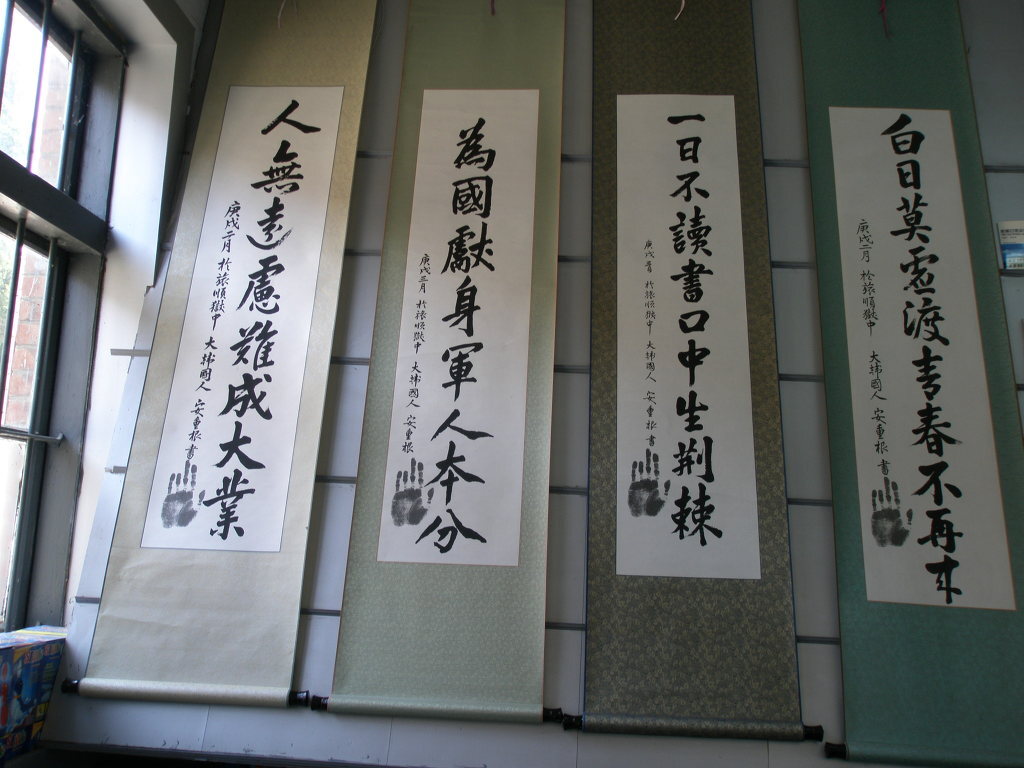 人無遠慮難成大業
庚戌二月 於旅順獄中 大韓國人 安重根 書
為國獻身軍人本分
庚戌三月 於旅順獄中 大韓國人 安重根
一日不讀書口中生荊棘
庚戌 於旅順獄中 大韓國人 安重根 書
白日莫虛渡青春不再來
庚戌二月 於旅順獄中 大韓國人 安重根 書